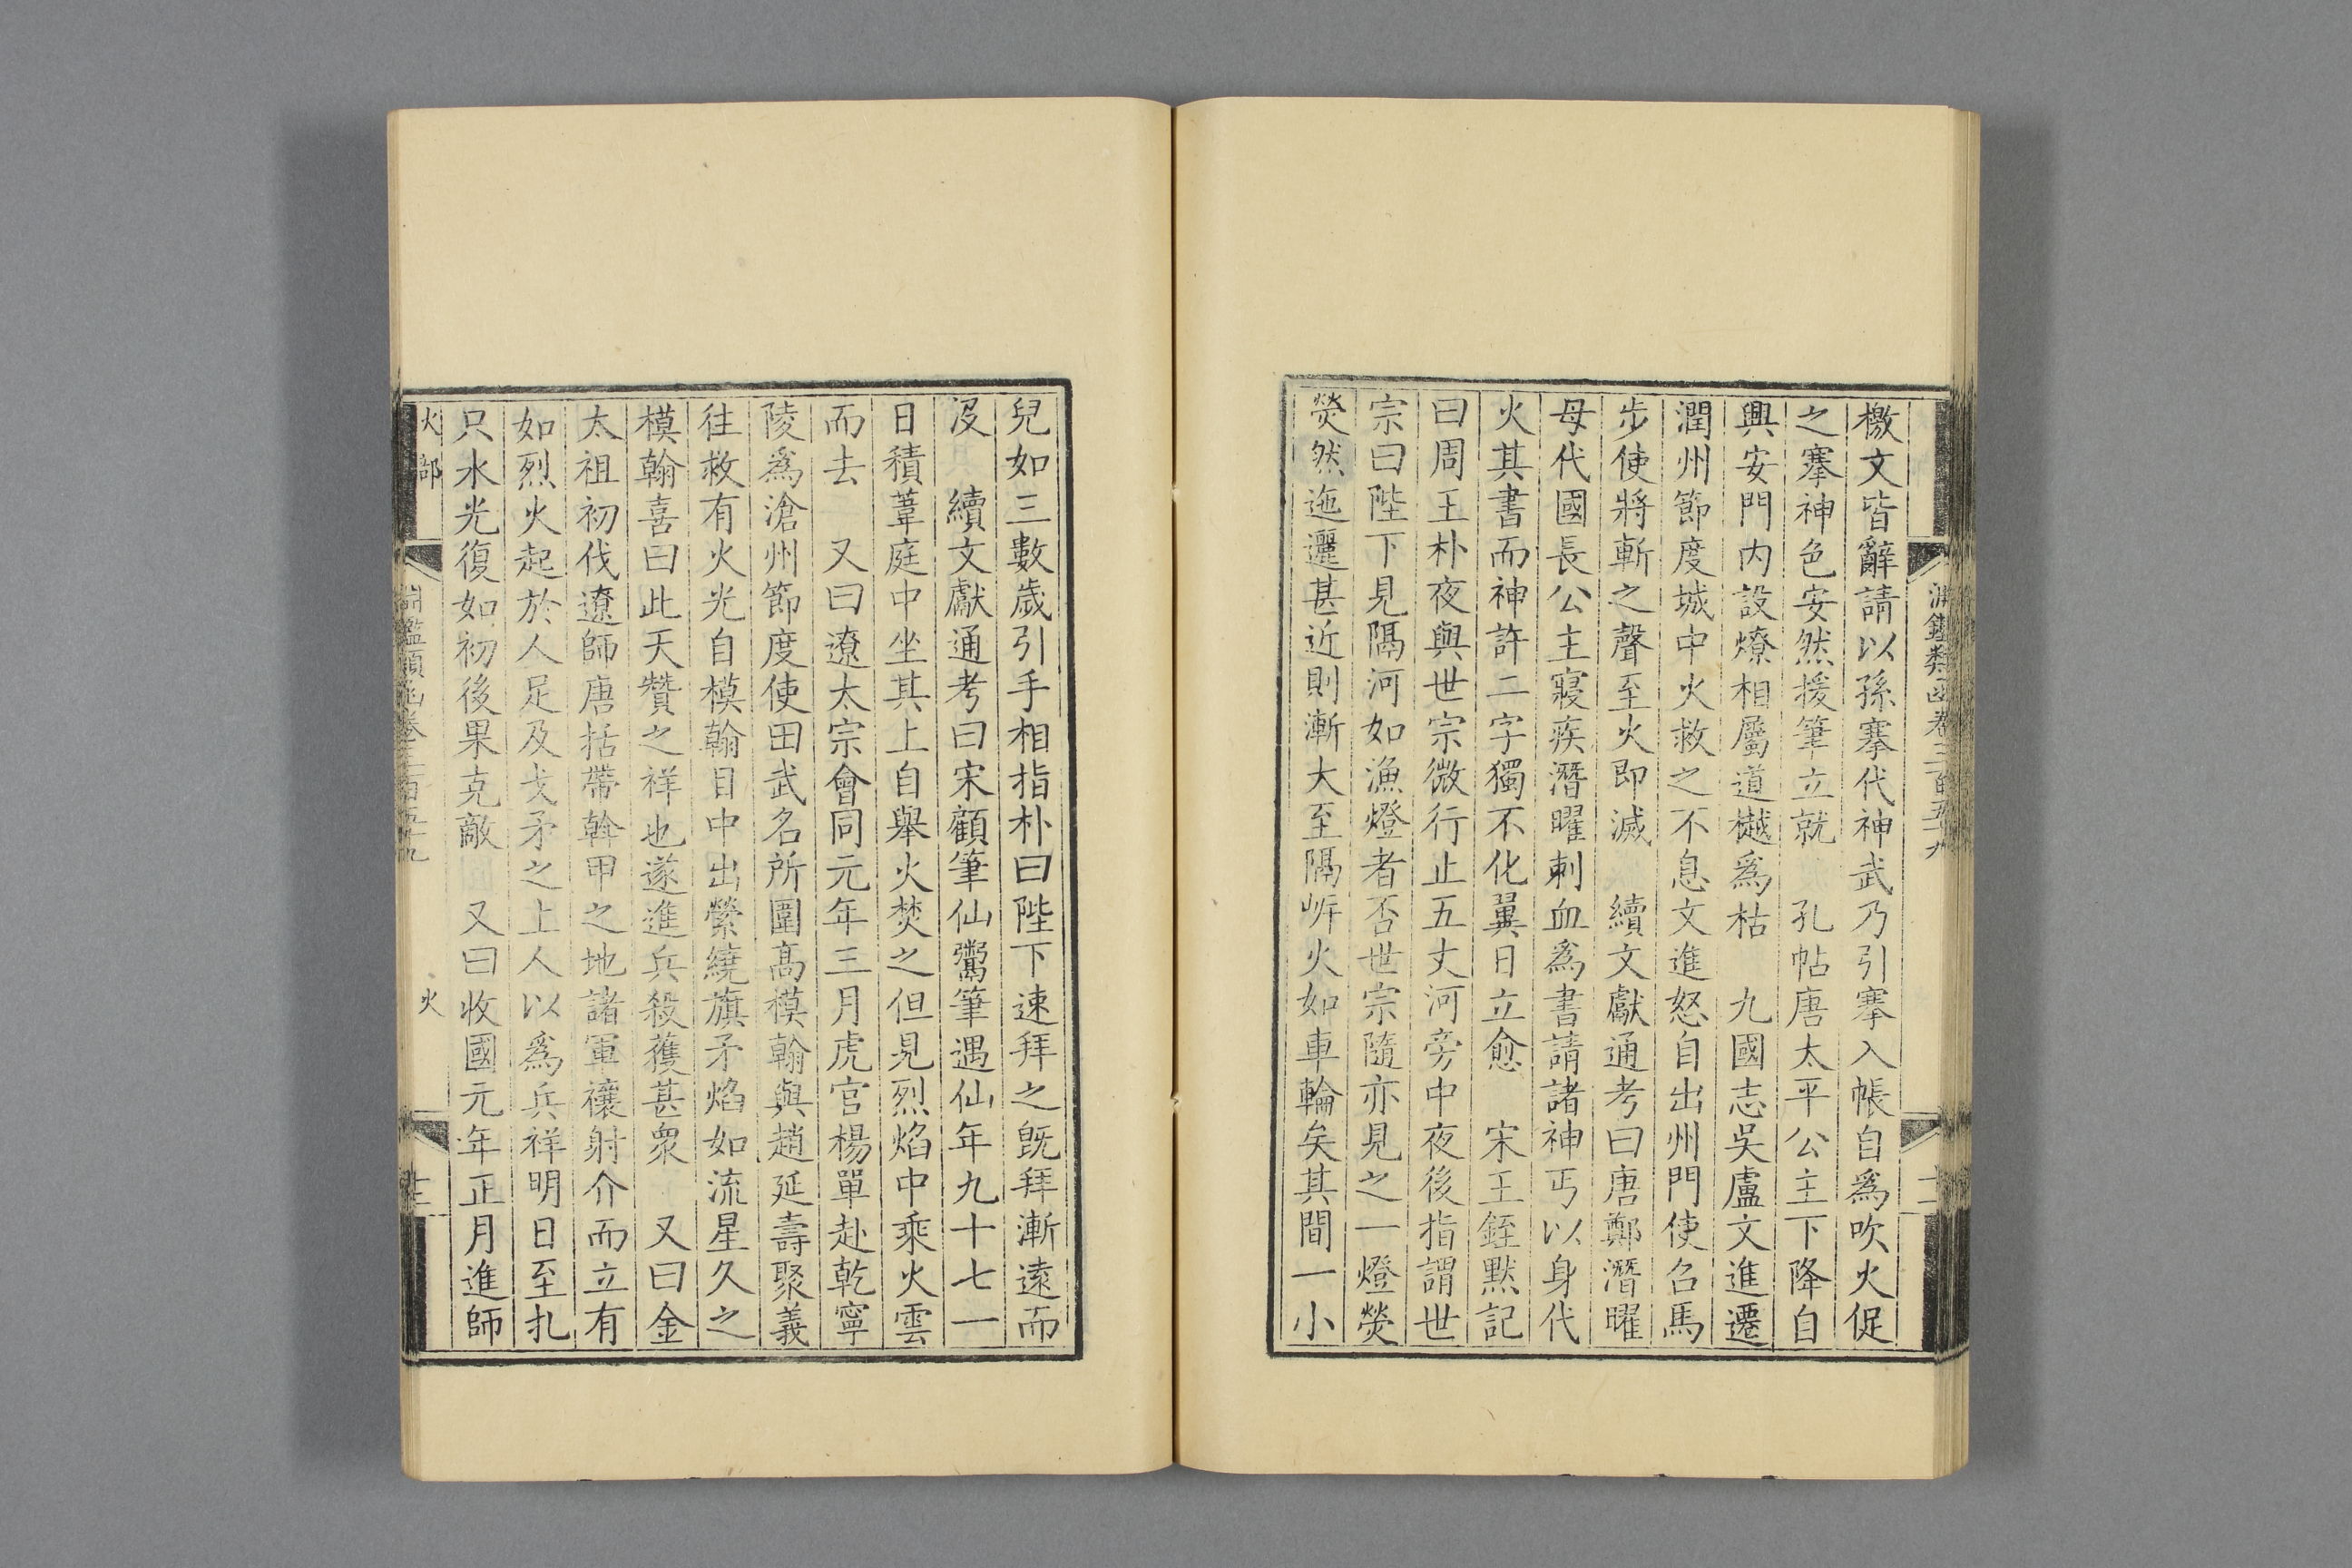 淵鑑類函卷三百五十九
檄文皆辭請以孫搴代神武乃引搴入帳自爲吹火促
之搴神色安然援筆立就　孔帖唐太平公主下降自
興安門內設燎相屬道樾爲枯　九國志吳盧文進遷
潤州節度城中火救之不息文進怒自出州門使召馬
步使將斬之聲至火即滅　續文獻通考曰唐鄭潛曜
母代國長公主寢疾潛曜刺血爲書請諸神丐以身代
火其書而神許二字獨不化翼日立愈　宋王銍默記
曰周王朴夜與世宗微行止五丈河旁中夜後指謂世
宗曰陛下見隔河如漁燈者否世宗隨亦見之一燈熒
熒然迤邐甚近則漸大至隔岍火如車輪矣其間一小
兒如三數歲引手相指朴曰陛下速拜之旣拜漸遠而
沒　續文獻通考曰宋顧筆仙鬻筆遇仙年九十七一
日積葦庭中坐其上自舉火焚之但見烈焰中乘火雲
而去　又曰遼太宗會同元年三月虎官楊單赴乾寧
陵爲滄州節度使田武名所圍高模翰與趙延壽聚義
往救有火光自模翰目中出縈繞旗矛焰如流星久之
模翰喜曰此天贊之祥也遂進兵殺獲甚衆　又曰金
太祖初伐遼師唐括帶斡甲之地諸軍禳射介而立有
如烈火起於人足及戈矛之上人以爲兵祥明日至扎
只水光復如初後果克敵　又曰收國元年正月進師
火部
淵鑑類函卷三百五十九
火